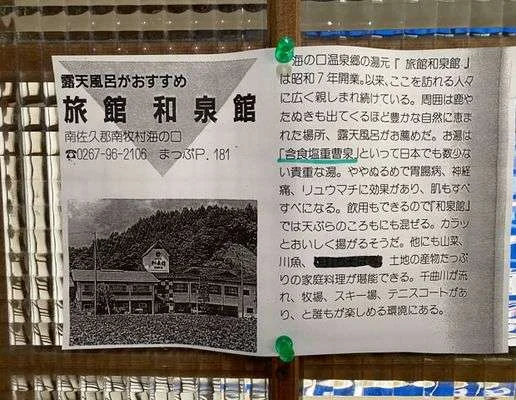 露天風呂がおすすめ
旅館 和泉館
南佐久郡南牧村海の口
☎0267-96-2106 まっぷP.181
海の口温泉郷の湯元『旅館和泉館』
は昭和7年開業。以来、ここを訪れる人々
に広く親しまれ続けている。周囲は鹿や
たぬきも出てくるほど豊かな自然に恵ま
れた場所、露天風呂がお薦めだ。お湯は
「含食塩重曹泉」といって日本でも数少な
い貴重な湯。ややぬるめで胃腸病、神経
痛、リュウマチに効果があり、肌もすべ
すべになる。飲用もできるので『和泉館』
では天ぷらのころもにも混ぜる。カラッ
とおいしく揚がるそうだ。他にも山菜、
川魚、 土地の産物たっぷ
りの家庭料理が堪能できる。千曲川が流
れ、牧場、スキー場、テニスコートがあ
り、と誰もが楽しめる環境にある。